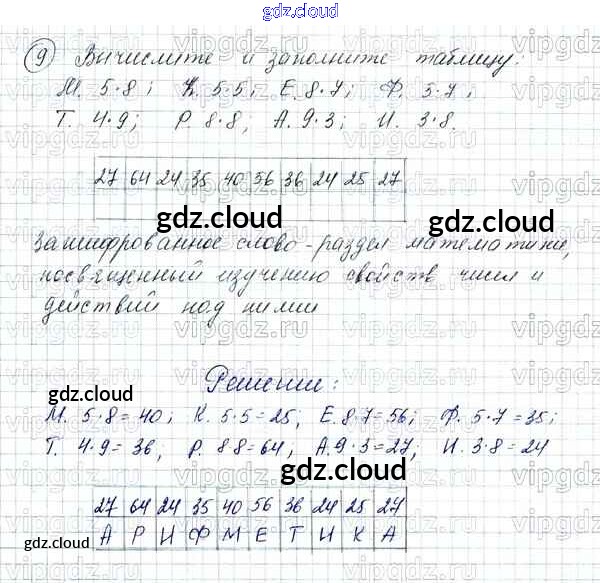 gdz.cloud
⑨ Вычислите и заполните таблицу:
М. 5·8; К. 5·5; Е. 8·7; Ф. 5·7;
Т. 4·9; Р. 8·8; А. 9·3; И. 3·8.
27 64 24 35 40 56 36 24 25 27
gdz.cloud gdz.cloud
Зашифрованное слово - раздел математики,
посвященный изучению свойств чисел и
действий под ними
gdz.cloud
Решение:
gdz.cloud
М. 5·8=40; К. 5·5=25, Е. 8·7=56; Ф. 5·7=35;
Т. 4·9=36, Р. 8·8=64, А. 9·3=27, И. 3·8=24
gdz.cloud
27 64 24 35 40 56 36 24 25 27
А Р И Ф М Е Т И К А
gdz.cloud gdz.cloud
gdz.cloud